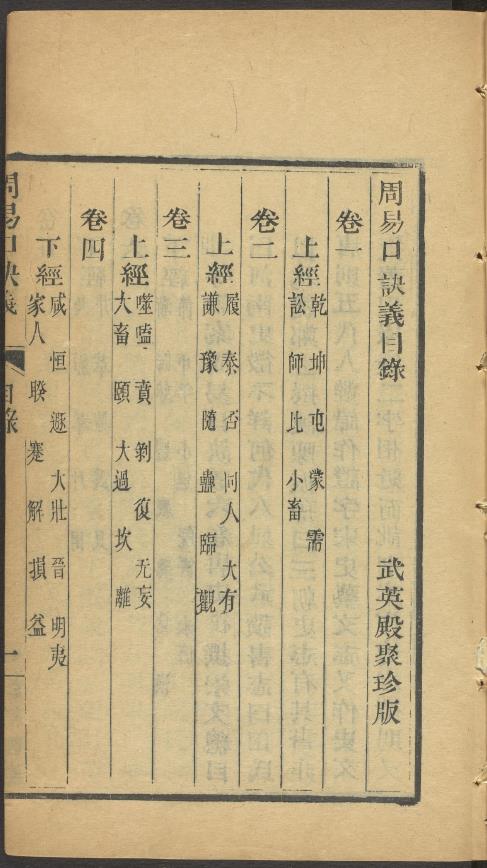 周易口訣義目錄 武英殿聚珍版
卷一
上經 乾 坤 屯 蒙 需
訟 師 比 小畜
卷二
上經 履 泰 否 同人 大有
謙 豫 隨 蠱 臨 觀
卷三
上經 噬嗑 賁 剝 復 无妄
大畜 頤 大過 坎 離
卷四
下經 咸 恒 遯 大壯 晉 明夷
家人 睽 蹇 解 損 益
周易口訣義 目錄 一